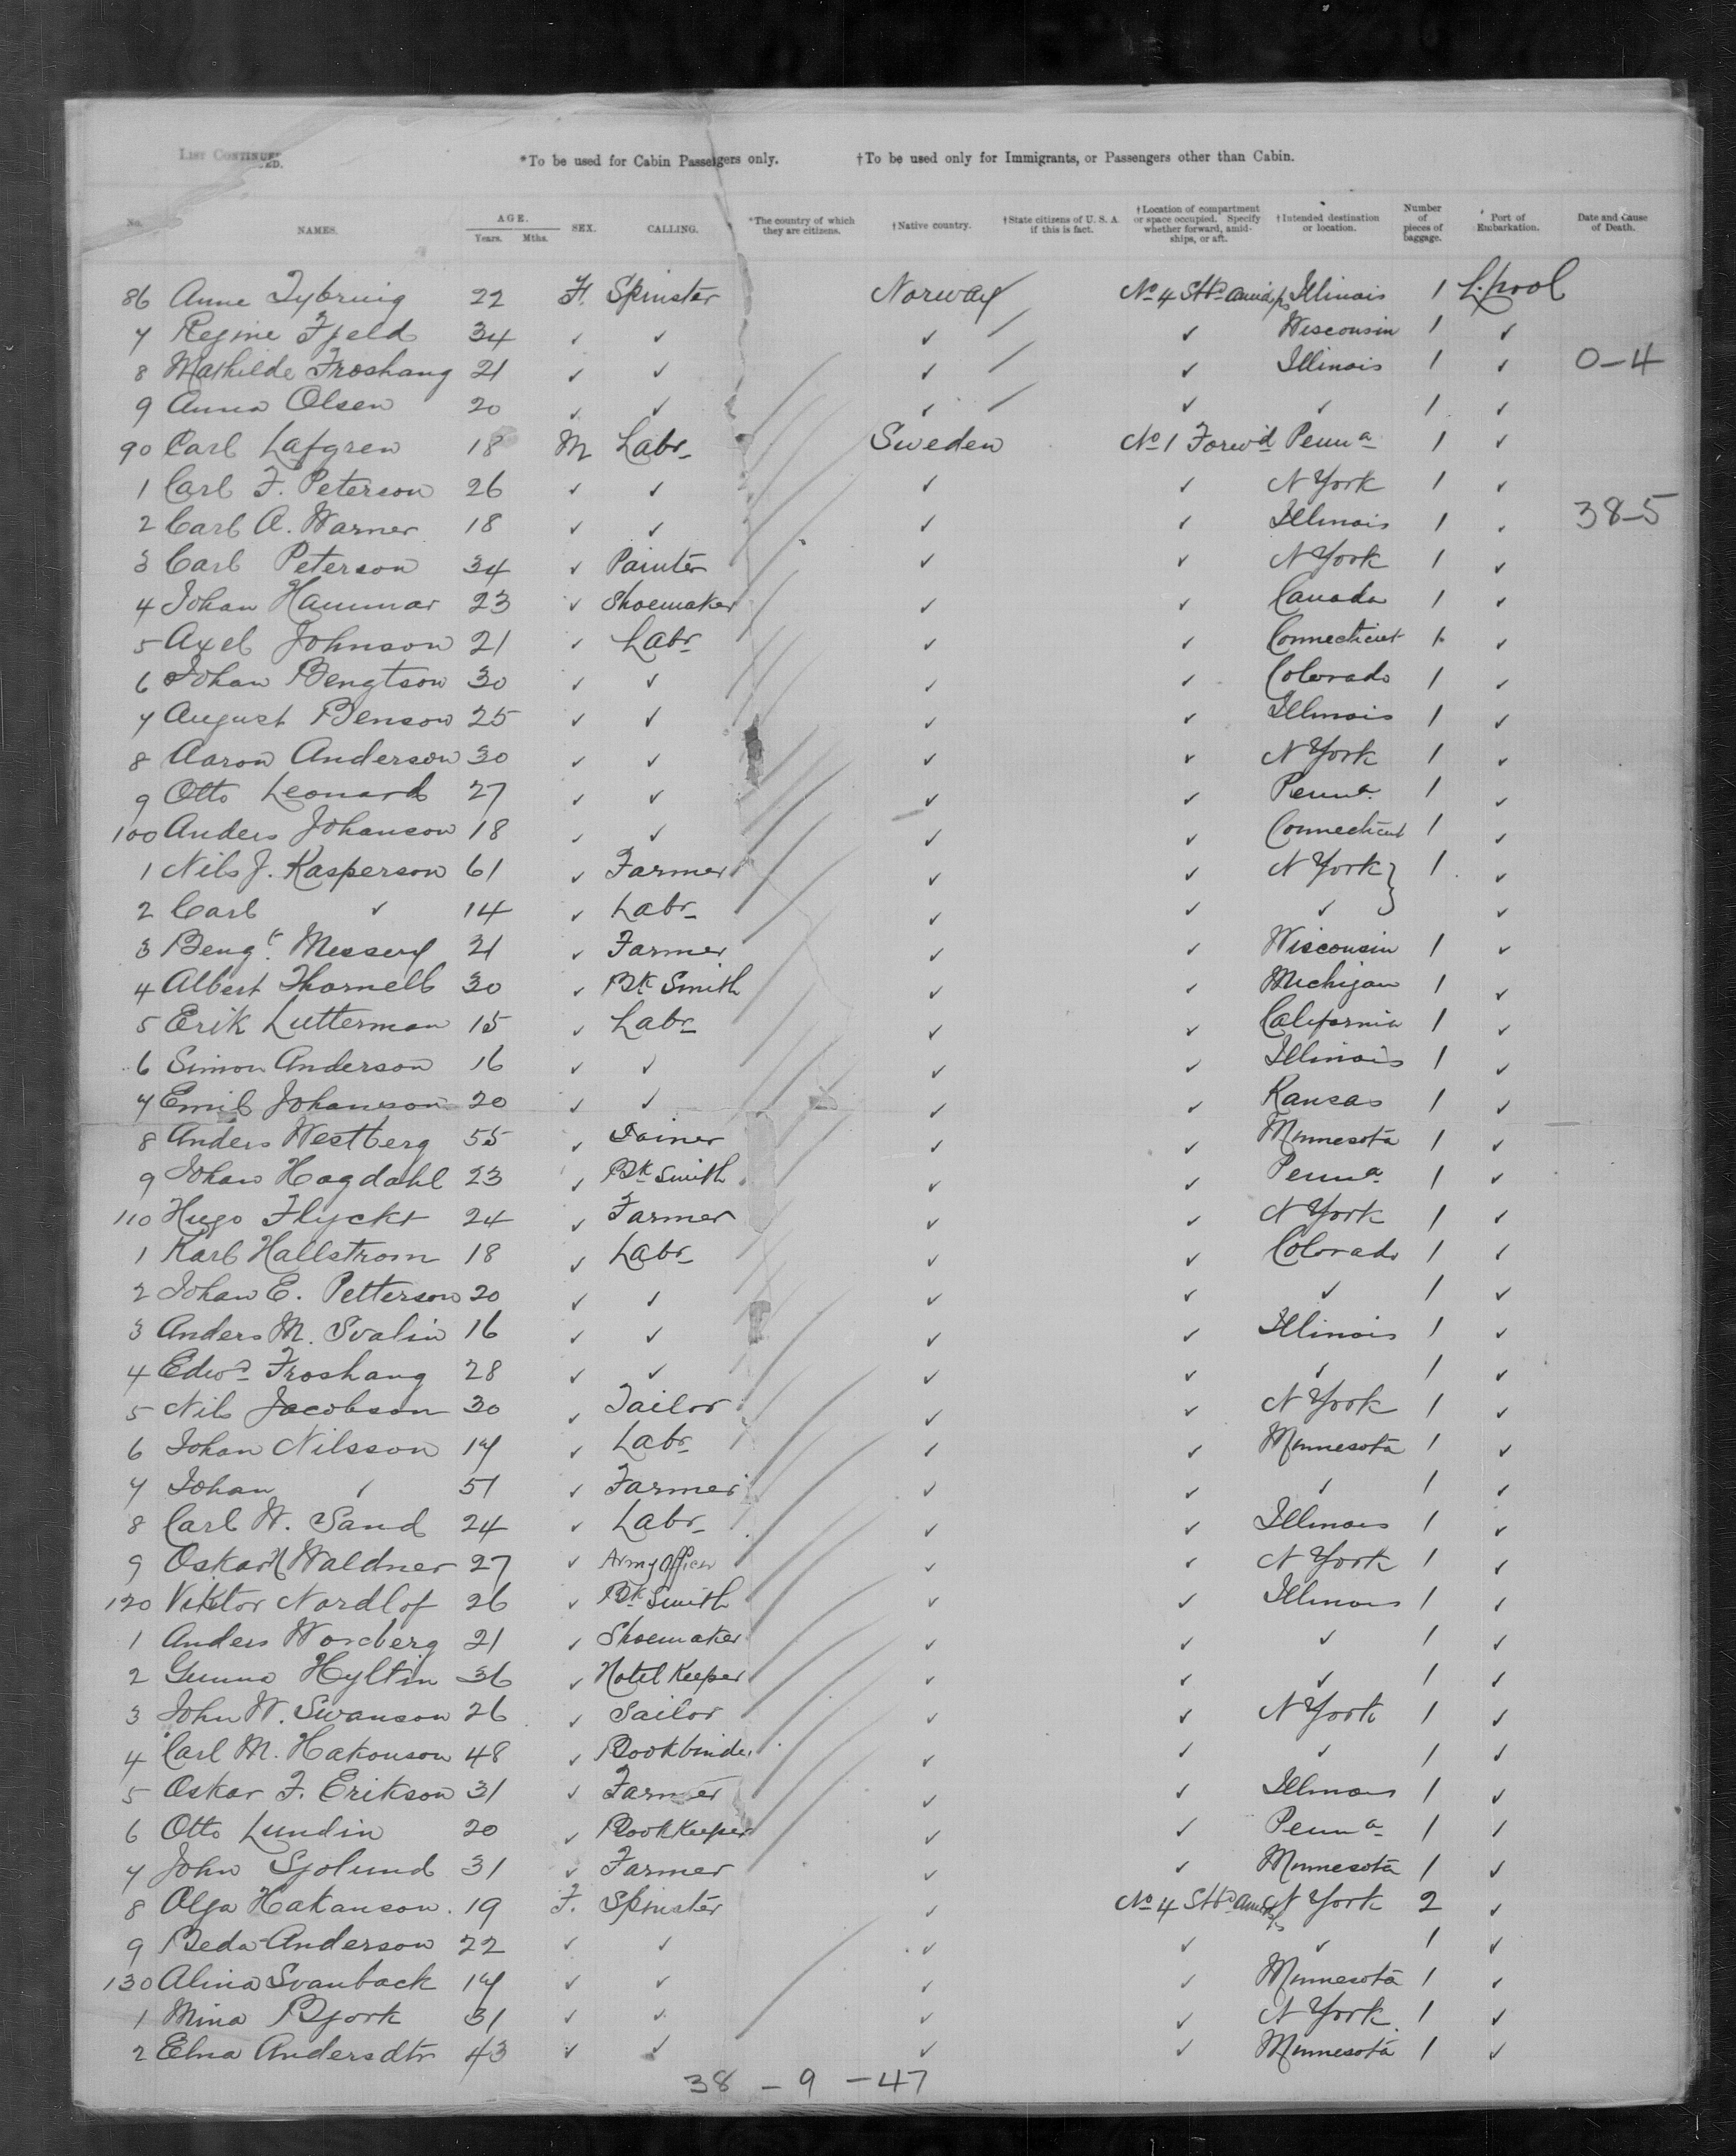 LIST CONTINUED.
*To be used for Cabin Passengers only. †To be used only for Immigrants, or Passengers other than Cabin.
No. NAMES. AGE. Years. Mths. SEX. CALLING. *The country of which they are citizens. †Native country. †State citizens of U. S. A. if this is fact. †Location of compartment or space occupied. Specify whether forward, amidships, or aft. †Intended destination or location. Number of pieces of baggage. Port of Embarkation. Date and Cause of Death.
86 Anne Tybring 22 F. Spinster Norway No 4 Stbd amidps Illinois 1 L.pool
7 Regine Fjeld 34 ✓ ✓ ✓ ✓ Wisconsin 1 ✓
8 Mathilde Froshang 21 ✓ ✓ ✓ ✓ Illinois 1 ✓ 0-4
9 Anna Olsen 20 ✓ ✓ ✓ ✓ ✓ 1 ✓
90 Carl Lafgren 18 M Labr Sweden No 1 Forwd Penna 1 ✓
1 Carl F. Peterson 26 ✓ ✓ ✓ ✓ N York 1 ✓
2 Carl A. Warner 18 ✓ ✓ ✓ ✓ Illinois 1 ✓ 38-5
3 Carl Peterson 34 ✓ Painter ✓ ✓ N York 1 ✓
4 Johan Hammar 23 ✓ Shoemaker ✓ ✓ Canada 1 ✓
5 Axel Johnson 21 ✓ Labr ✓ ✓ Connecticut 1 ✓
6 Johan Bengtson 30 ✓ ✓ ✓ ✓ Colorado 1 ✓
7 August Benson 25 ✓ ✓ ✓ ✓ Illinois 1 ✓
8 Aaron Anderson 30 ✓ ✓ ✓ ✓ N York 1 ✓
9 Otto Leonard 27 ✓ ✓ ✓ ✓ Penna. 1 ✓
100 Anders Johanson 18 ✓ ✓ ✓ ✓ Connecticut 1 ✓
1 Nils J. Kasperson 61 ✓ Farmer ✓ ✓ N York } 1 ✓
2 Carl ✓ 14 ✓ Labr ✓ ✓ ✓ ✓
3 Bengt 21 ✓ Farmer ✓ ✓ Wisconsin 1 ✓
4 Albert Thornell 30 ✓ Bk Smith ✓ ✓ Michigan 1 ✓
5 Erik Lutterman 15 ✓ Labr ✓ ✓ California 1 ✓
6 Simon Anderson 16 ✓ ✓ ✓ ✓ Illinois 1 ✓
7 Emil Johanson 20 ✓ ✓ ✓ ✓ Kansas 1 ✓
8 Anders Westberg 55 ✓ Joiner ✓ ✓ Minnesota 1 ✓
9 Johan Hagdahl 23 ✓ Bk Smith ✓ ✓ Penna. 1 ✓
110 Hugo Flyckt 24 ✓ Farmer ✓ ✓ N York 1 ✓
1 Karl Hallstrom 18 ✓ Labr ✓ ✓ Colorado 1 ✓
2 Johan E. Petterson 20 ✓ ✓ ✓ ✓ ✓ 1 ✓
3 Anders M. Svalin 16 ✓ ✓ ✓ ✓ Illinois 1 ✓
4 Edwd Froshang 28 ✓ ✓ ✓ ✓ ✓ 1 ✓
5 Nils Jacobson 30 ✓ Tailor ✓ ✓ N York 1 ✓
6 Johan Nilsson 17 ✓ Labr ✓ ✓ Minnesota 1 ✓
7 Johan ✓ 51 ✓ Farmer ✓ ✓ ✓ 1 ✓
8 Carl W. Sand 24 ✓ Labr ✓ ✓ Illinois 1 ✓
9 Oskar N Waldner 27 ✓ Army Officer ✓ ✓ N York 1 ✓
120 Viktor Nordlof 26 ✓ Bk Smith ✓ ✓ Illinois 1 ✓
1 Anders 21 ✓ Shoemaker ✓ ✓ ✓ 1 ✓
2 Gunna Hyltin 36 ✓ Hotel Keeper ✓ ✓ ✓ 1 ✓
3 John W. Swanson 26 ✓ Sailor ✓ ✓ N York 1 ✓
4 Carl M. Hakonson 48 ✓ Bookbinder ✓ ✓ ✓ 1 ✓
5 Oskar F. Erikson 31 ✓ Farmer ✓ ✓ Illinois 1 ✓
6 Otto Lundin 20 ✓ Bookkeeper ✓ ✓ Penna 1 ✓
7 John Sjolund 31 ✓ Farmer ✓ ✓ Minnesota 1 ✓
8 Olga Hakanson. 19 F. Spinster ✓ No 4 Stbd amidps N York 2 ✓
9 Beda Anderson 22 ✓ ✓ ✓ ✓ ✓ 1 ✓
130 Alina Svanback 17 ✓ ✓ ✓ ✓ Minnesota 1 ✓
1 Mina Bjork 31 ✓ ✓ ✓ ✓ N York. 1 ✓
2 Elna Andersdtr 43 ✓ ✓ ✓ ✓ Minnesota 1 ✓
38 - 9 - 47